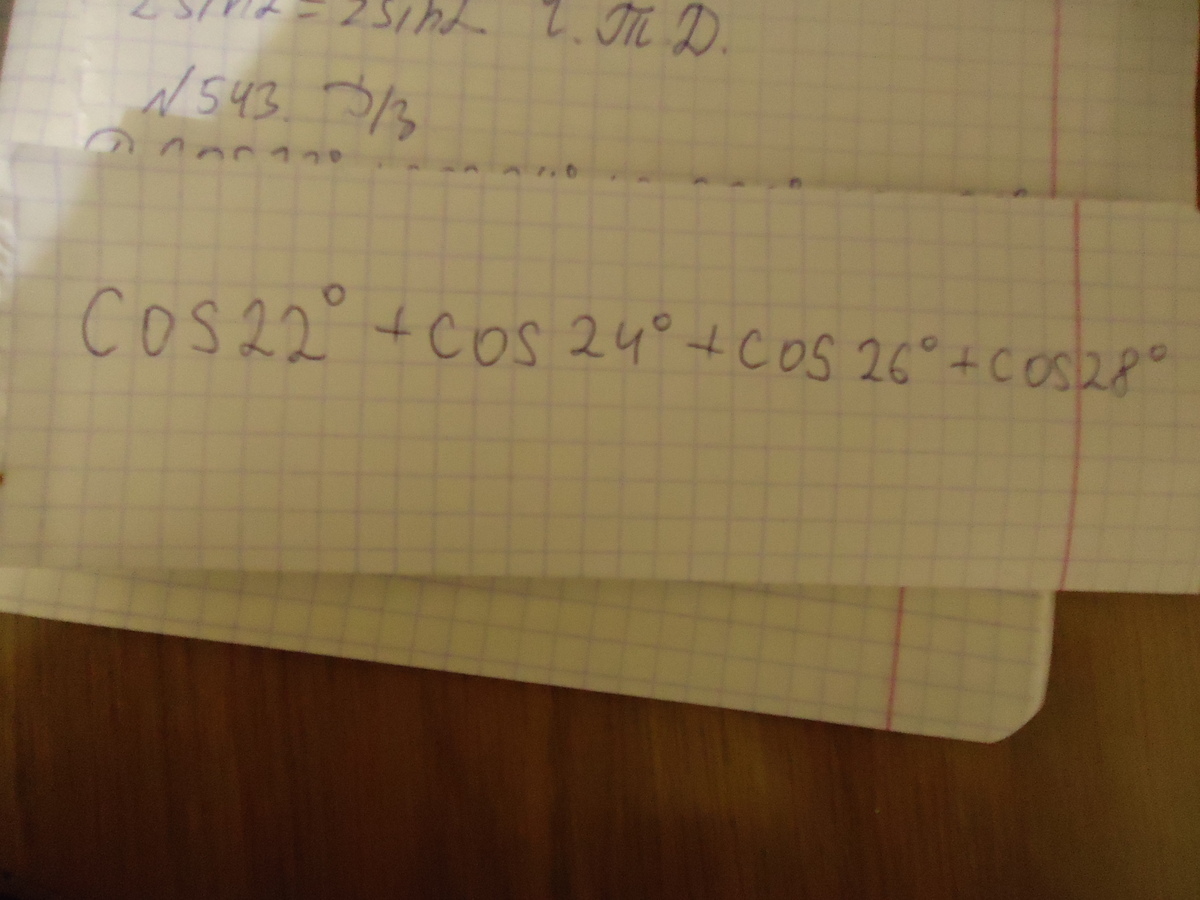 2sinα = 2sinα Ч.Т.Д.
№543. Д/З
cos22° + cos24° + cos26° + cos28°